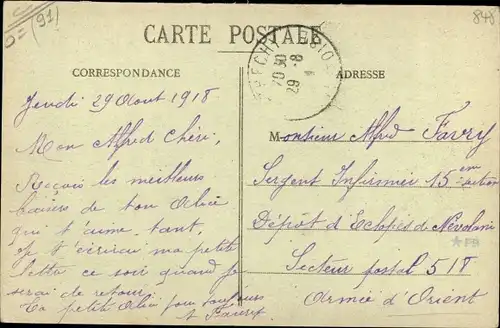 (91)
848
CARTE POSTALE
CORRESPONDANCE
ADRESSE
20 30
29 - 8
Jeudi 29 Aout 1918
Mon Alfred Chéri,
Reçois les meilleurs
baisers de ton
qui t'aime tant,
je t'écrirai ma petite
ce soir quand je
serai de retour,
Ta petite pour toujours
Monsieur Alfred Favry
Sergent Infirmier 15em Section
Dépôt d'Eclopés de
Secteur postal 518
Armée d'Orient